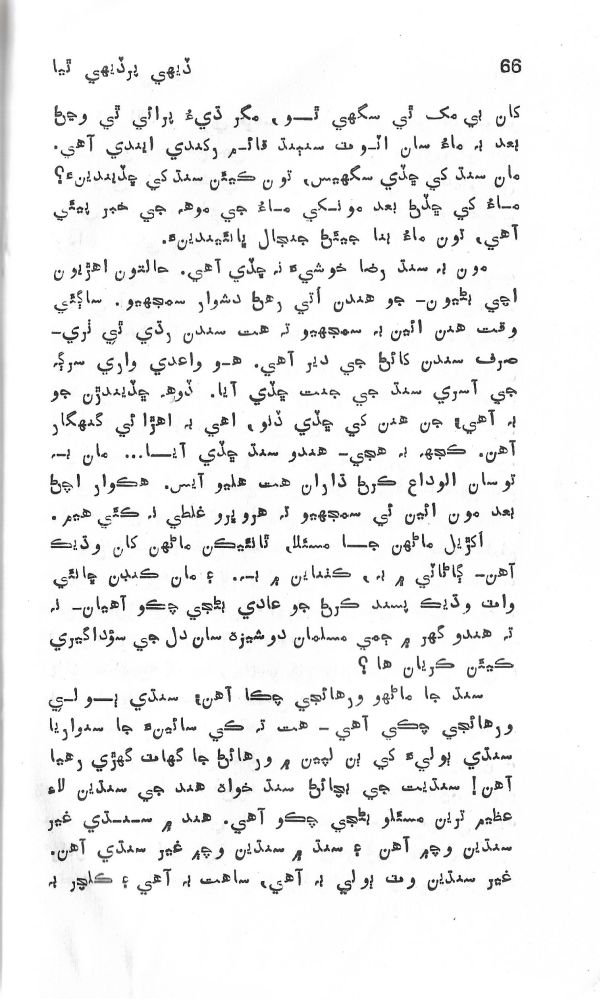 66 ڏيهي پرڏيهي ٿيا
کان ٻي مک ٿي سگهي ٿــو، مگر ڌيءُ پرائي ٿي وڃڻ
بعد به ماءُ سان اٽـوٽ سنٻنڌ قائـم رکندي ايندي آهي.
مان سنڌ کي ڇڏي سگهيس، تون ڪيئن سنڌ کي ڇڏيندينءَ؟
مـاءُ کي ڇڏڻ بعد مونـکي مـاءُ جي موهه جي خبر پيئي
آهي، تون ماءُ بنا جيئڻ جنجال ڀائنيندينءَ.
مون به سنڌ رضا خوشيءَ نه ڇڏي آهي. حالتون اهڙيون
اچي بڻيون- جو هندن اُتي رهڻ دشوار سمجهيو. ساڳئي
وقت هنن ائين به سمجهيو ته هت سندن رڌي ٿي ٺري-
صرف سندن کائڻ جي دير آهي. هـو واعدي واري سرڳه
جي آسري سنڌ جي جنت ڇڏي آيا. ڏوهه ڇڏيندڙن جو
به آهي؛ جن هنن کي ڇڏي ڏنو، اهي به اهڙا ئي گنهگار
آهن. ڪجهه به هجي- هندو سنڌ ڇڏي آيــا... مان بــه
توسان الوداع ڪرڻ ڌاران هت هليو آيس. هڪوار اچڻ
بعد مون ائين ئي سمجهيو ته هروڀرو غلطي نه ڪئي هيم.
اکڙيل ماڻهن جــا مسئلا، ٿانيڪن ماڻهن کان وڌيڪ
آهن- ڳاڻاٽي ۾ به، ڪٺناين ۾ بــه. ۽ مان ڪنڌن ڇانئي
وات وڌيڪ پسند ڪرڻ جو عادي بڻجي چڪو آهيان- نه
ته هندو گهر ۾ ڄمي مسلمان دوشيزه سان دل جي سؤداگيري
ڪيئن ڪريان ها ؟
سنڌ جا ماڻهو ورهائجي چڪا آهن؛ سنڌي ٻــولــي
ورهائجي چڪي آهي - هت ته کي سائينءَ جا سنواريا
سنڌي ٻوليءَ کي ٻن لپين ۾ ورهائڻ جا گهاٽ گهڙي رهيا
آهن! سنڌيت جي بچائڻ سنڌ خواه هند جي سنڌين لاءِ
عظيم ترين مسئلو بڻجي چڪو آهي. هند ۾ ســنــڌي غير
سنڌين وچ۾ آهن ۽ سنڌ ۾ سنڌين وچ۾ غير سنڌي آهن.
غير سنڌين وٽ ٻولي به آهي، ساهت به آهي ۽ ڪلچر به